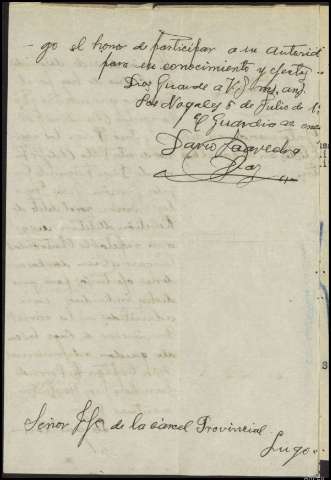 - go el honor de participar a su autorid
para su conocimiento y efectos
Dios Guarde a V. ms. ans.
Los Nogales 5 de Julio de 1
El Guardia
Dario Saavedra
Diaz
Señor Jfe de la cárcel Provincial.
Lugo.